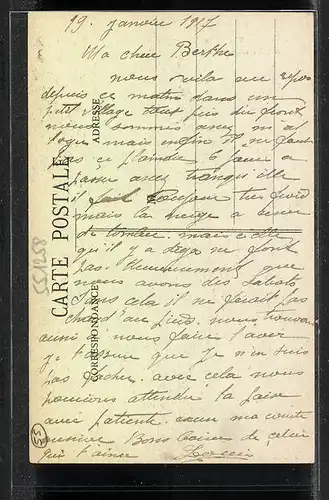 19. janvier 1917
Ma cher Berthe
nous voila au repos
depuis ce matin dans un
petit village tout pres du front
nous sommes assez mal
loge mais enfin il ne faut
pas ce plaindre 6 jours a
passer assez tranquille
il fait toujours tres froid
mais la neige a
de tomber. mais celle
qu'il y a deja ne font
pas. Heureusement que
nous avons des sabots
sans cela il ne ferait pas
chaud au pieds. nous
aussi nous faire l'aver
je t'assure que je n'en suis
pas facher. avec cela nous
pourrions attendre la paix
avec patiente.
Bons baiser de celui
qui t'aime
CARTE POSTALE
CORRESPONDANCE
ADRESSE
551258